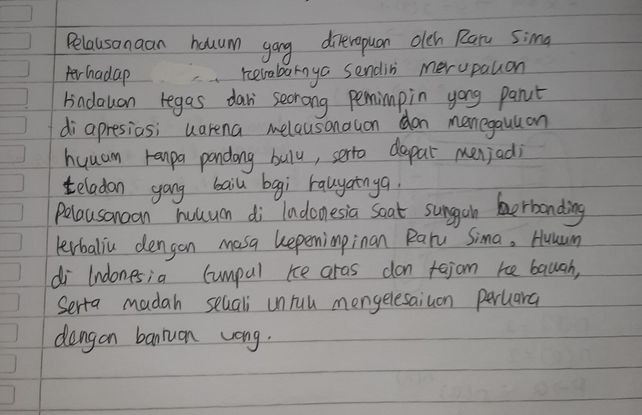 Pelaksanaan hukum yang diterapkan oleh Ratu Sima
terhadap kerabatnya sendiri merupakan
tindakan tegas dari seorang pemimpin yang patut
di apresiasi karena melaksanakan dan menegakkan
hukum tanpa pandang bulu, serta dapat menjadi
teladan yang baik bagi rakyatnya.
Pelaksanaan hukum di Indonesia saat sungguh berbanding
terbalik dengan masa kepemimpinan Ratu Sima. Hukum
di Indonesia tumpul ke atas dan tajam ke bawah,
serta mudah sekali untuk mengelesaikan perkara
dengan bantuan uang.